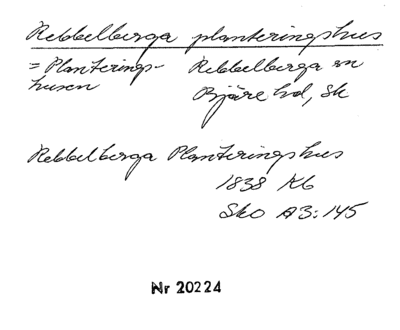 Rebbelberga planteringshus
= Planterings- Rebbelberga sn
husen Bjäre hd, Sk
Rebbelberga Planteringshus
1838 Kb
Sko A3:145
Nr 20224